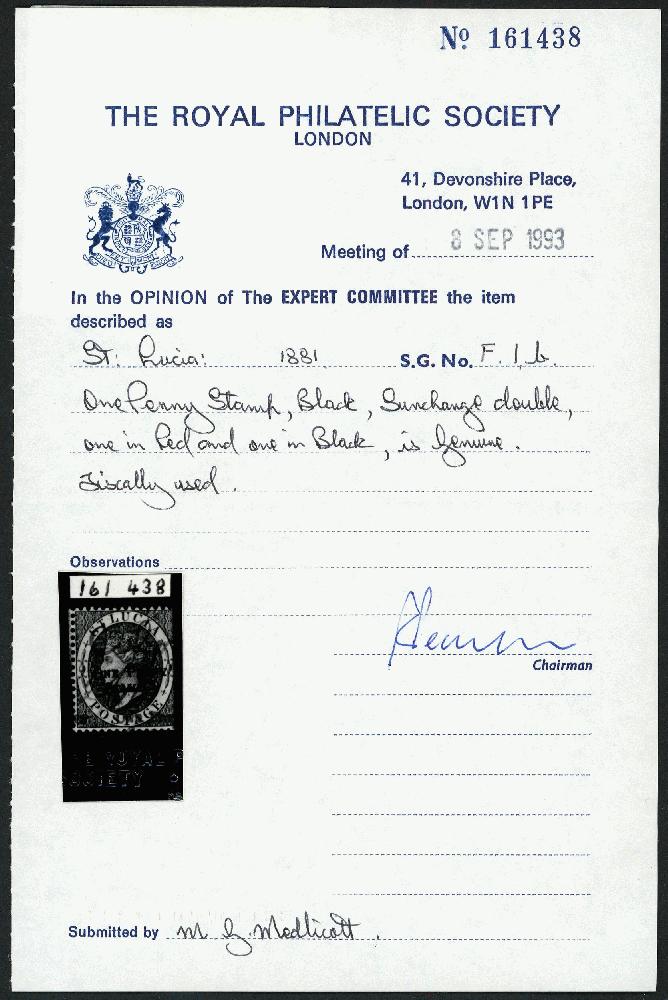 Nº 161438
THE ROYAL PHILATELIC SOCIETY
LONDON
41, Devonshire Place,
London, W1N 1PE
Meeting of 8 SEP 1993
In the OPINION of The EXPERT COMMITTEE the item
described as
St: Lucia: 1881. S.G. No. F. 1. b.
One Penny Stamp, Black, Surcharge double,
one in Red and one in Black, is Genuine.
Fiscally used.
Observations
161 438
ST LUCIA
POSTAGE
E ROYAL P
SOCIETY
Chairman
Submitted by M G. Medlicott.